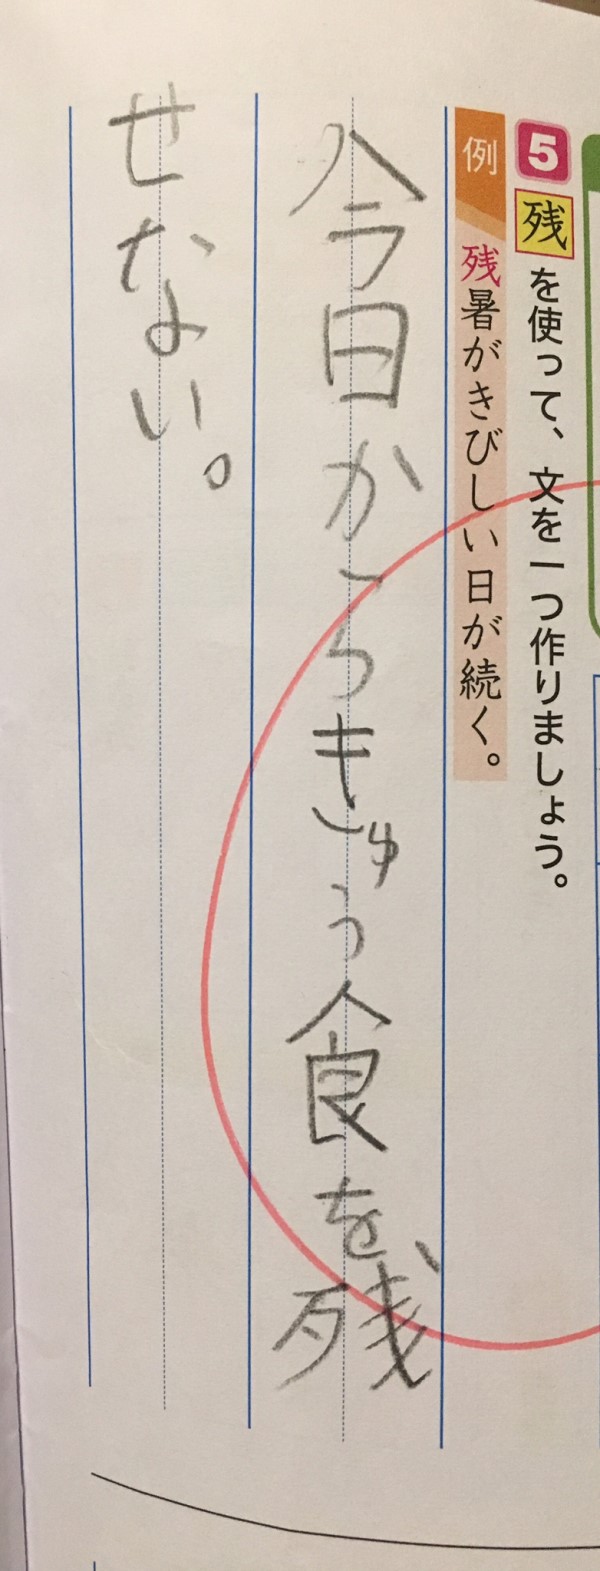 5 残を使って、文を一つ作りましょう。
例 残暑がきびしい日が続く。
今日からきゅう食を残
せない。